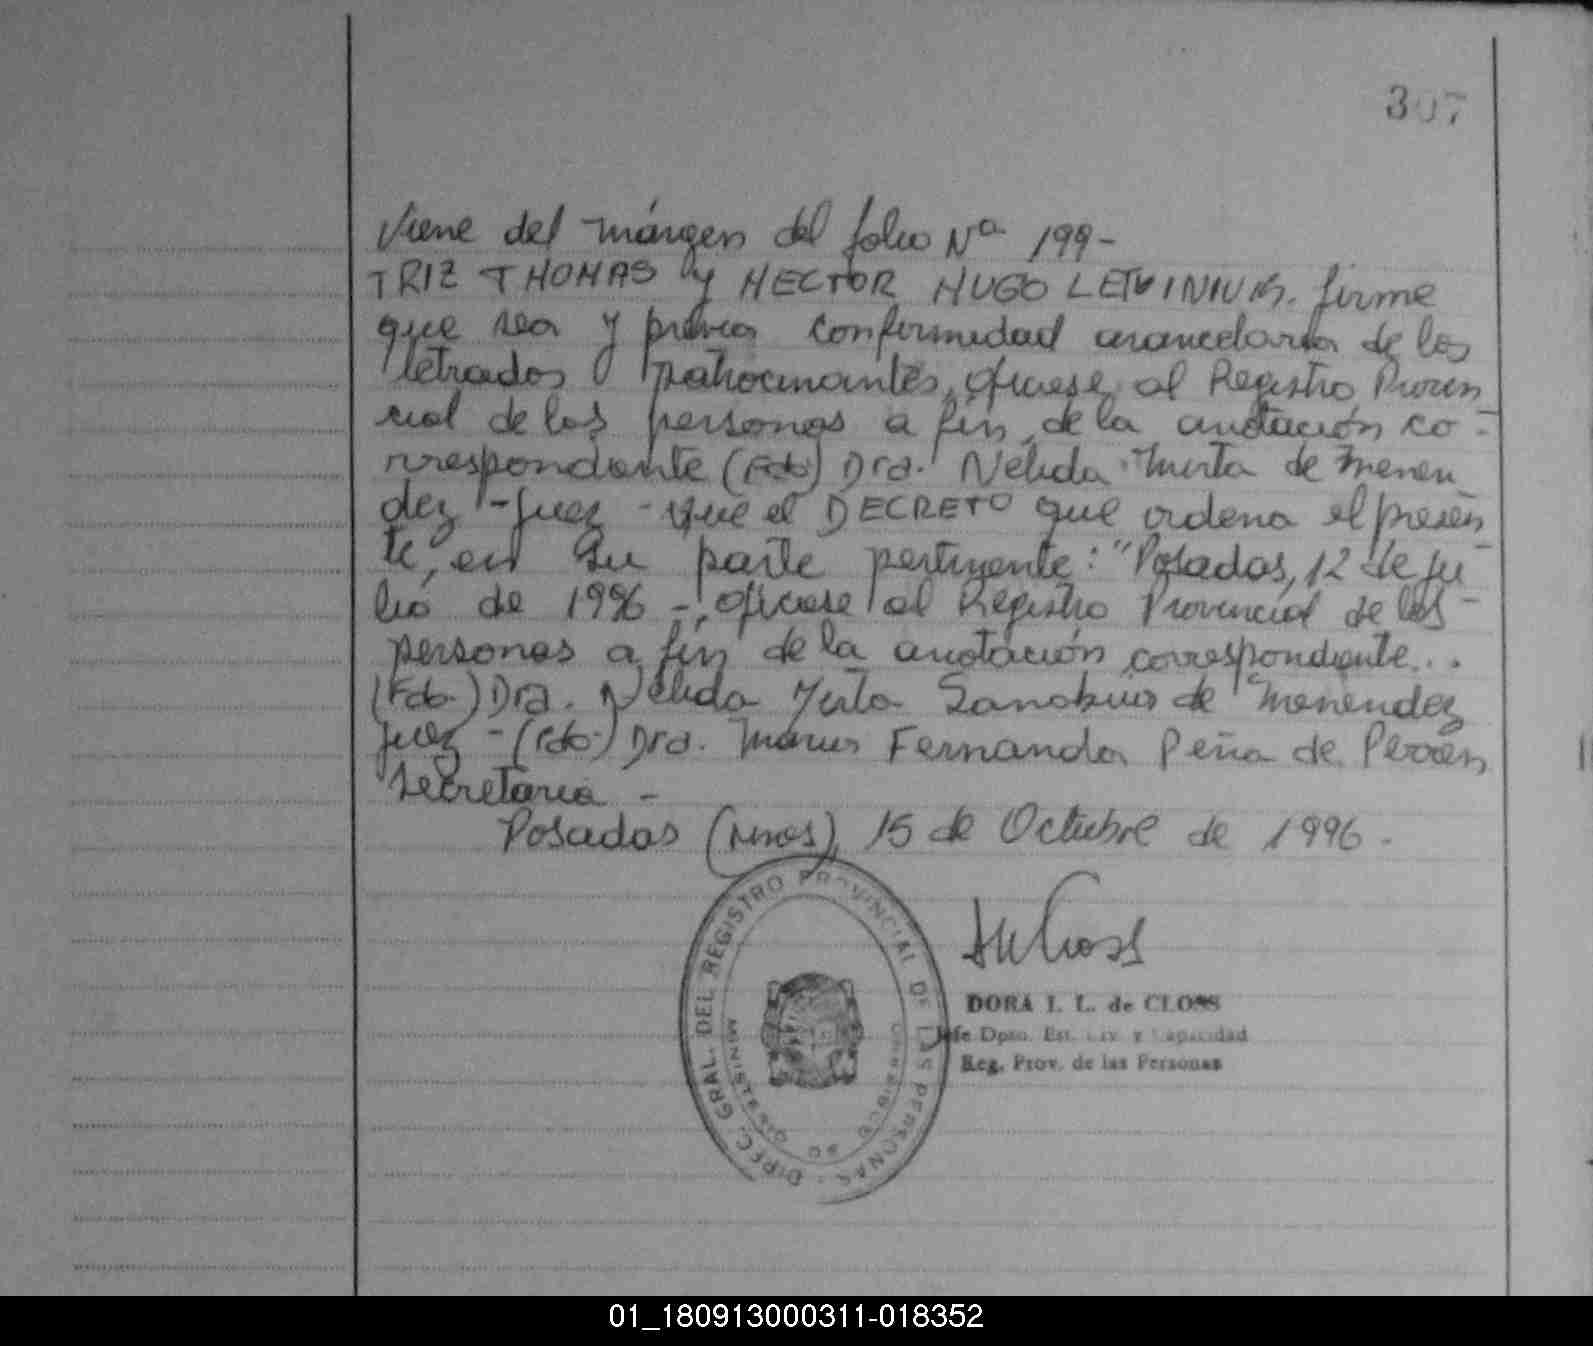 307
Viene del márgen del folio Nº 199-
TRIZ THOMAS y HECTOR HUGO firme
que sea y previa conformidad arancelaria de los
letrados patrocinantes, ofíciese al Registro Provin
cial de las personas a fin de la anotación co-
rrespondiente (Fdo) Dra. Nelida Mirta de Menen
dez - Juez - que el DECRETO que ordena el presen
te, en su parte pertinente: "Posadas, 12 de ju
lio de 1996 - ofíciese al Registro Provincial de las
personas a fin de la anotación correspondiente...
(Fdo.) Dra. Nélida Mirta de Menendez
Juez - (Fdo.) Dra. Fernanda Peña de
Secretaria -
Posadas (Mnes), 15 de Octubre de 1996.
DIREC. GRAL. DEL REGISTRO PROVINCIAL DE LAS PERSONAS
MINISTERIO DE GOBIERNO
DORA I. L. de CLOSS
Jefe Dpto. Est. Civ. y Capacidad
Reg. Prov. de las Personas
01_180913000311-018352